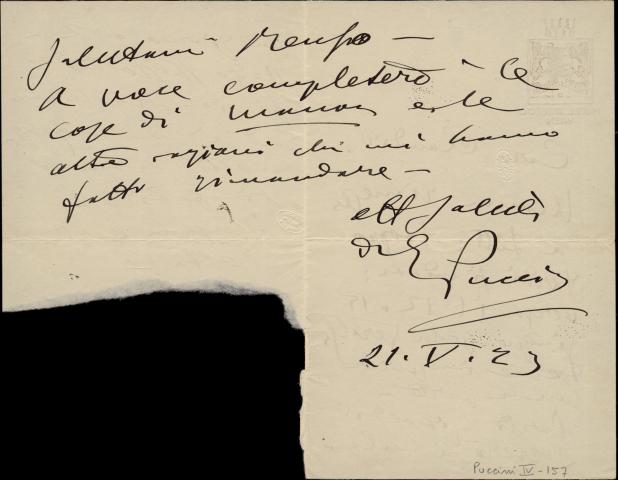 Salutami Renzo —
A voce completerò le
cose di Manon e le
altre ragioni che mi hanno
fatto rimandare —
aff saluti
di G Puccini
21. V. 23
Puccini IV - 157